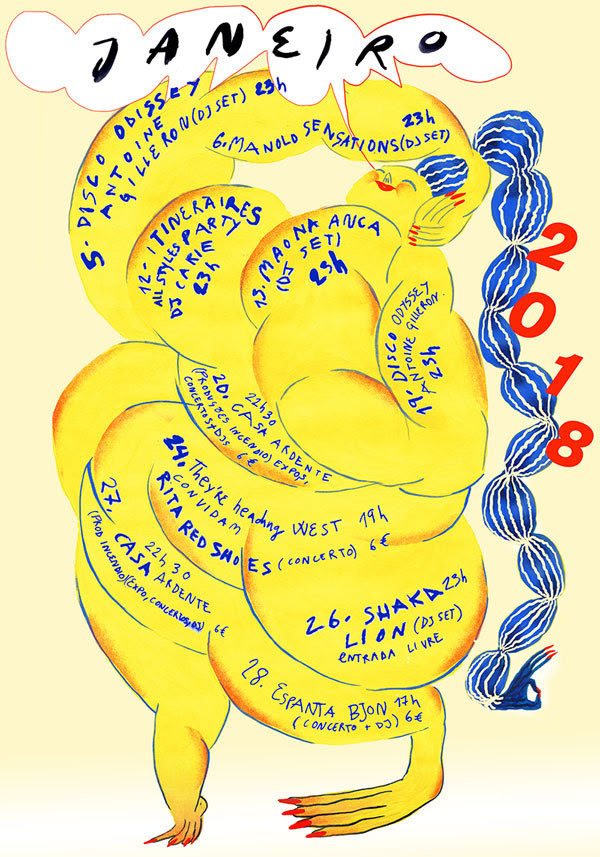 JANEIRO
2018
5. DISCO ODISSEY
ANTOINE
GILLERON (DJ SET) 23h
6. MANOLO SENSATIONS (DJ SET)
23h
12. ITINERAIRES
ALL STYLES PARTY
DJ CARIE
23h
13. MAONA ANCA
(DJ SET)
23h
19. DISCO ODYSSEY
ANTOINE GILLERON.
23h
22h30
20. CASA ARDENTE
(PRODUÇÕES INCENDIO) EXPOS.
CONCERTOS+DJS 6€
24. They're heading WEST 19h
CONVIDAM
RITA RED SHOES (CONCERTO) 6€
27. CASA ARDENTE
22h30
(PROD INCENDIO) (EXPO, CONCERTOS, DJ) 6€
26. SHAKA 23h
LION (DJ SET)
ENTRADA LIVRE
28. ESPANTA BJON 17h
(CONCERTO + DJ) 6€